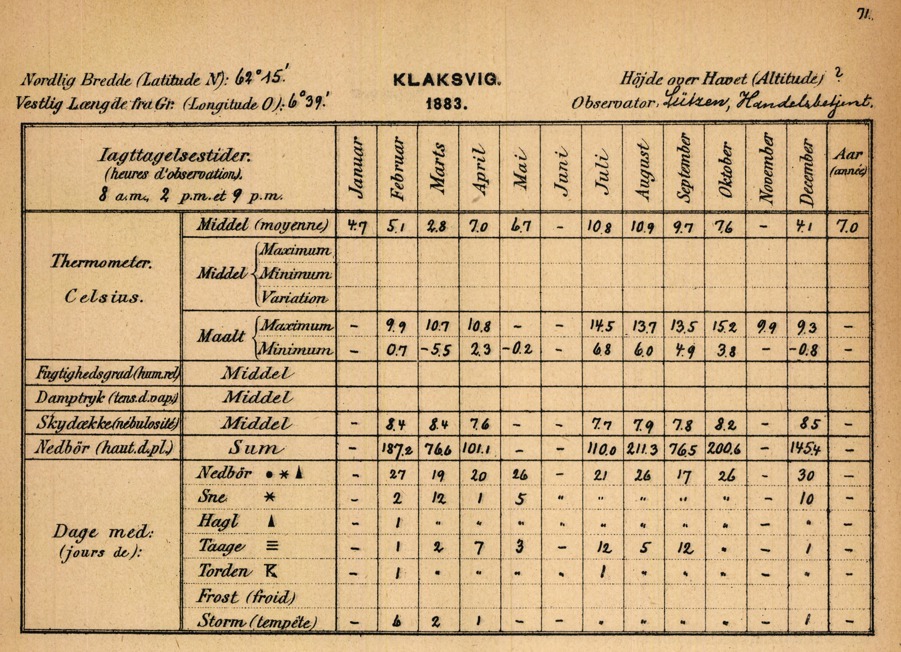 71.
Nordlig Bredde (Latitude N): 62°15.'
KLAKSVIG.
Höjde over Havet (Altitude) ?
Vestlig Længde fra Gr. (Longitude O): 6°39.'
1883.
Observator: Lützen, Handelsbetjent.
Iagttagelsestider. (heures d'observation). 8 a.m., 2 p.m. et 9 p.m. Januar Februar Marts April Mai Juni Juli August September Oktober November December Aar (année)
Thermometer. Celsius.
Middel (moyenne) 4.7 5.1 2.8 7.0 6.7 - 10.8 10.9 9.7 7.6 - 4.1 7.0
Middel { Maximum
Minimum
Variation
Maalt { Maximum - 9.9 10.7 10.8 - - 14.5 13.7 13.5 15.2 9.9 9.3 -
Minimum - 0.7 -5.5 2.3 -0.2 - 6.8 6.0 4.9 3.8 - -0.8 -
Fugtighedsgrad (hum.rel) Middel
Damptryk (tens.d.vap.) Middel
Skydække (nébulosité) Middel - 8.4 8.4 7.6 - - 7.7 7.9 7.8 8.2 - 8.5 -
Nedbör (haut.d.pl.) Sum - 187.2 76.6 101.1 - - 110.0 211.3 76.5 200.6 - 145.4 -
Dage med: (jours de):
Nedbör ● * ▲ - 27 19 20 26 - 21 26 17 26 - 30 -
Sne * - 2 12 1 5 " " " " " - 10 -
Hagl ▲ - 1 " " " " " " " " - " -
Taage ≡ - 1 2 7 3 - 12 5 12 " - 1 -
Torden K - 1 " " " " 1 " " " - " -
Frost (froid)
Storm (tempête) - 6 2 1 - - " " " " - 1 -